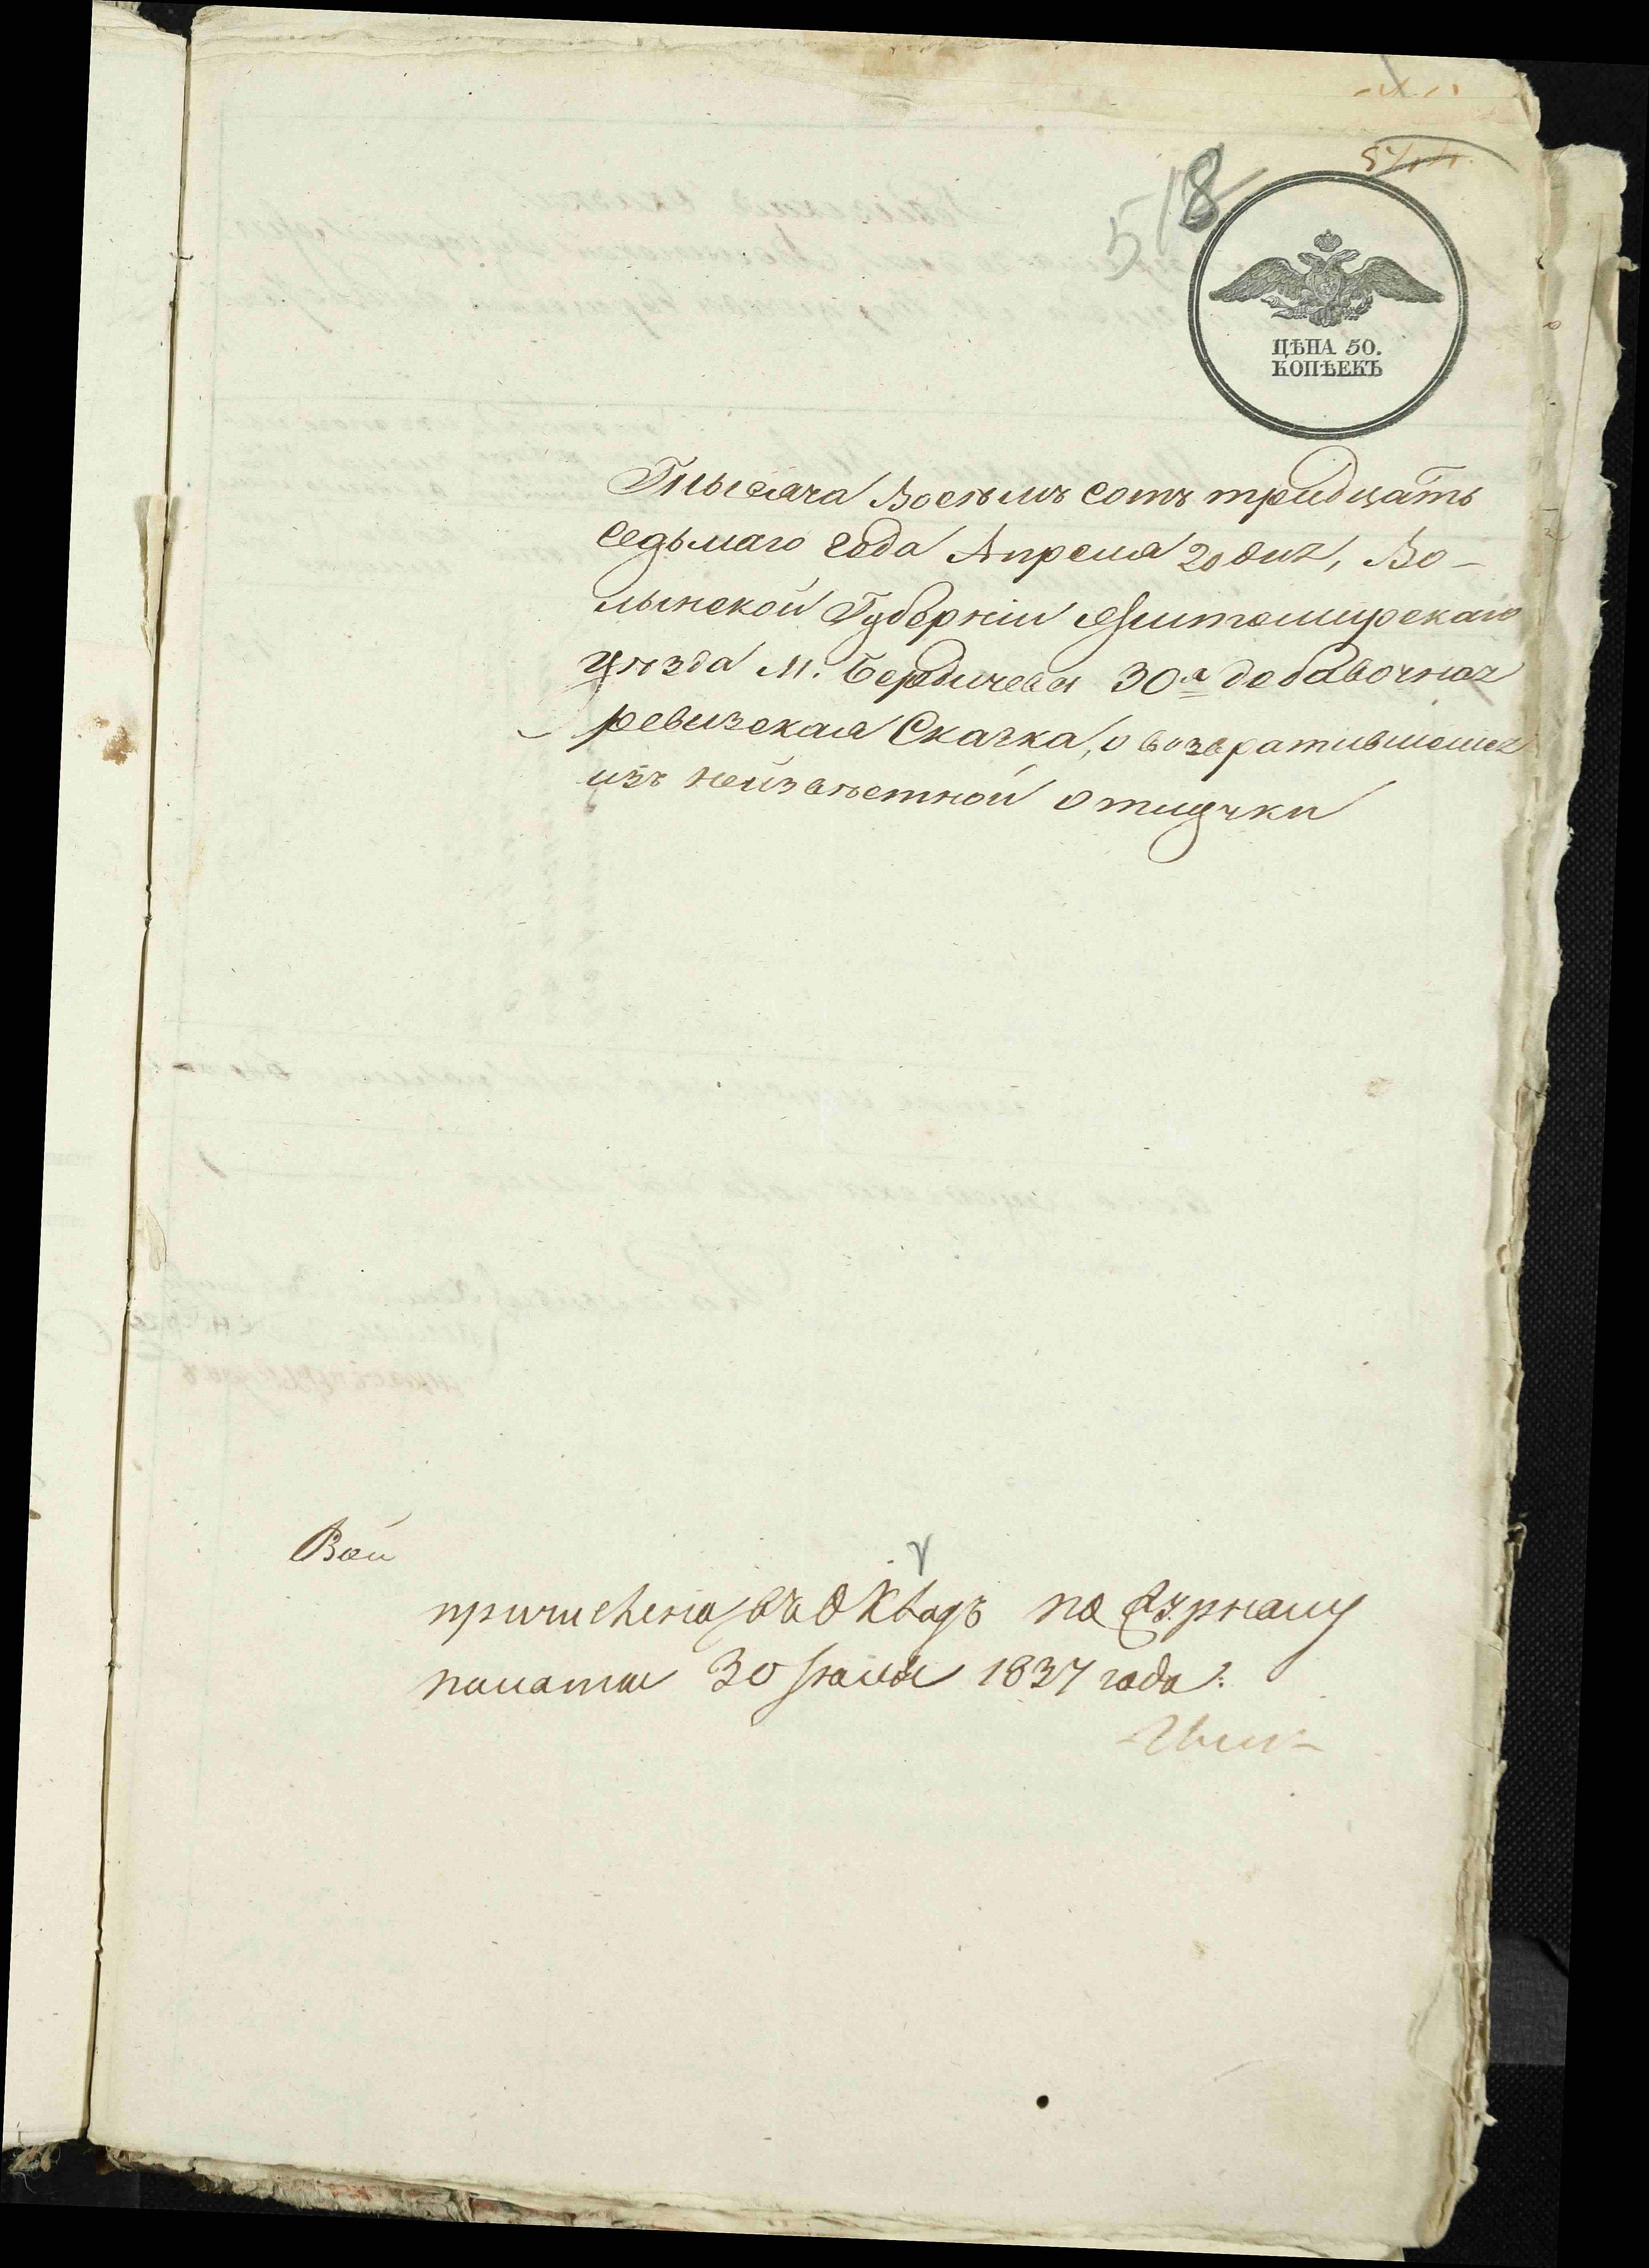 518
ЦѢНА 50.
КОПѢЕКЪ
Тысяча Восемь сотъ тридцать
седьмаго года Апреля 20 дня, Во-
лынской Губерніи Житомирскаго
уѣзда м. Бердичева 30я добавочная
ревизская Скаска, о возвратившемся
изъ неизвѣстной отлучки
причислена въ окладъ по журналу
палаты 30 1837 года.